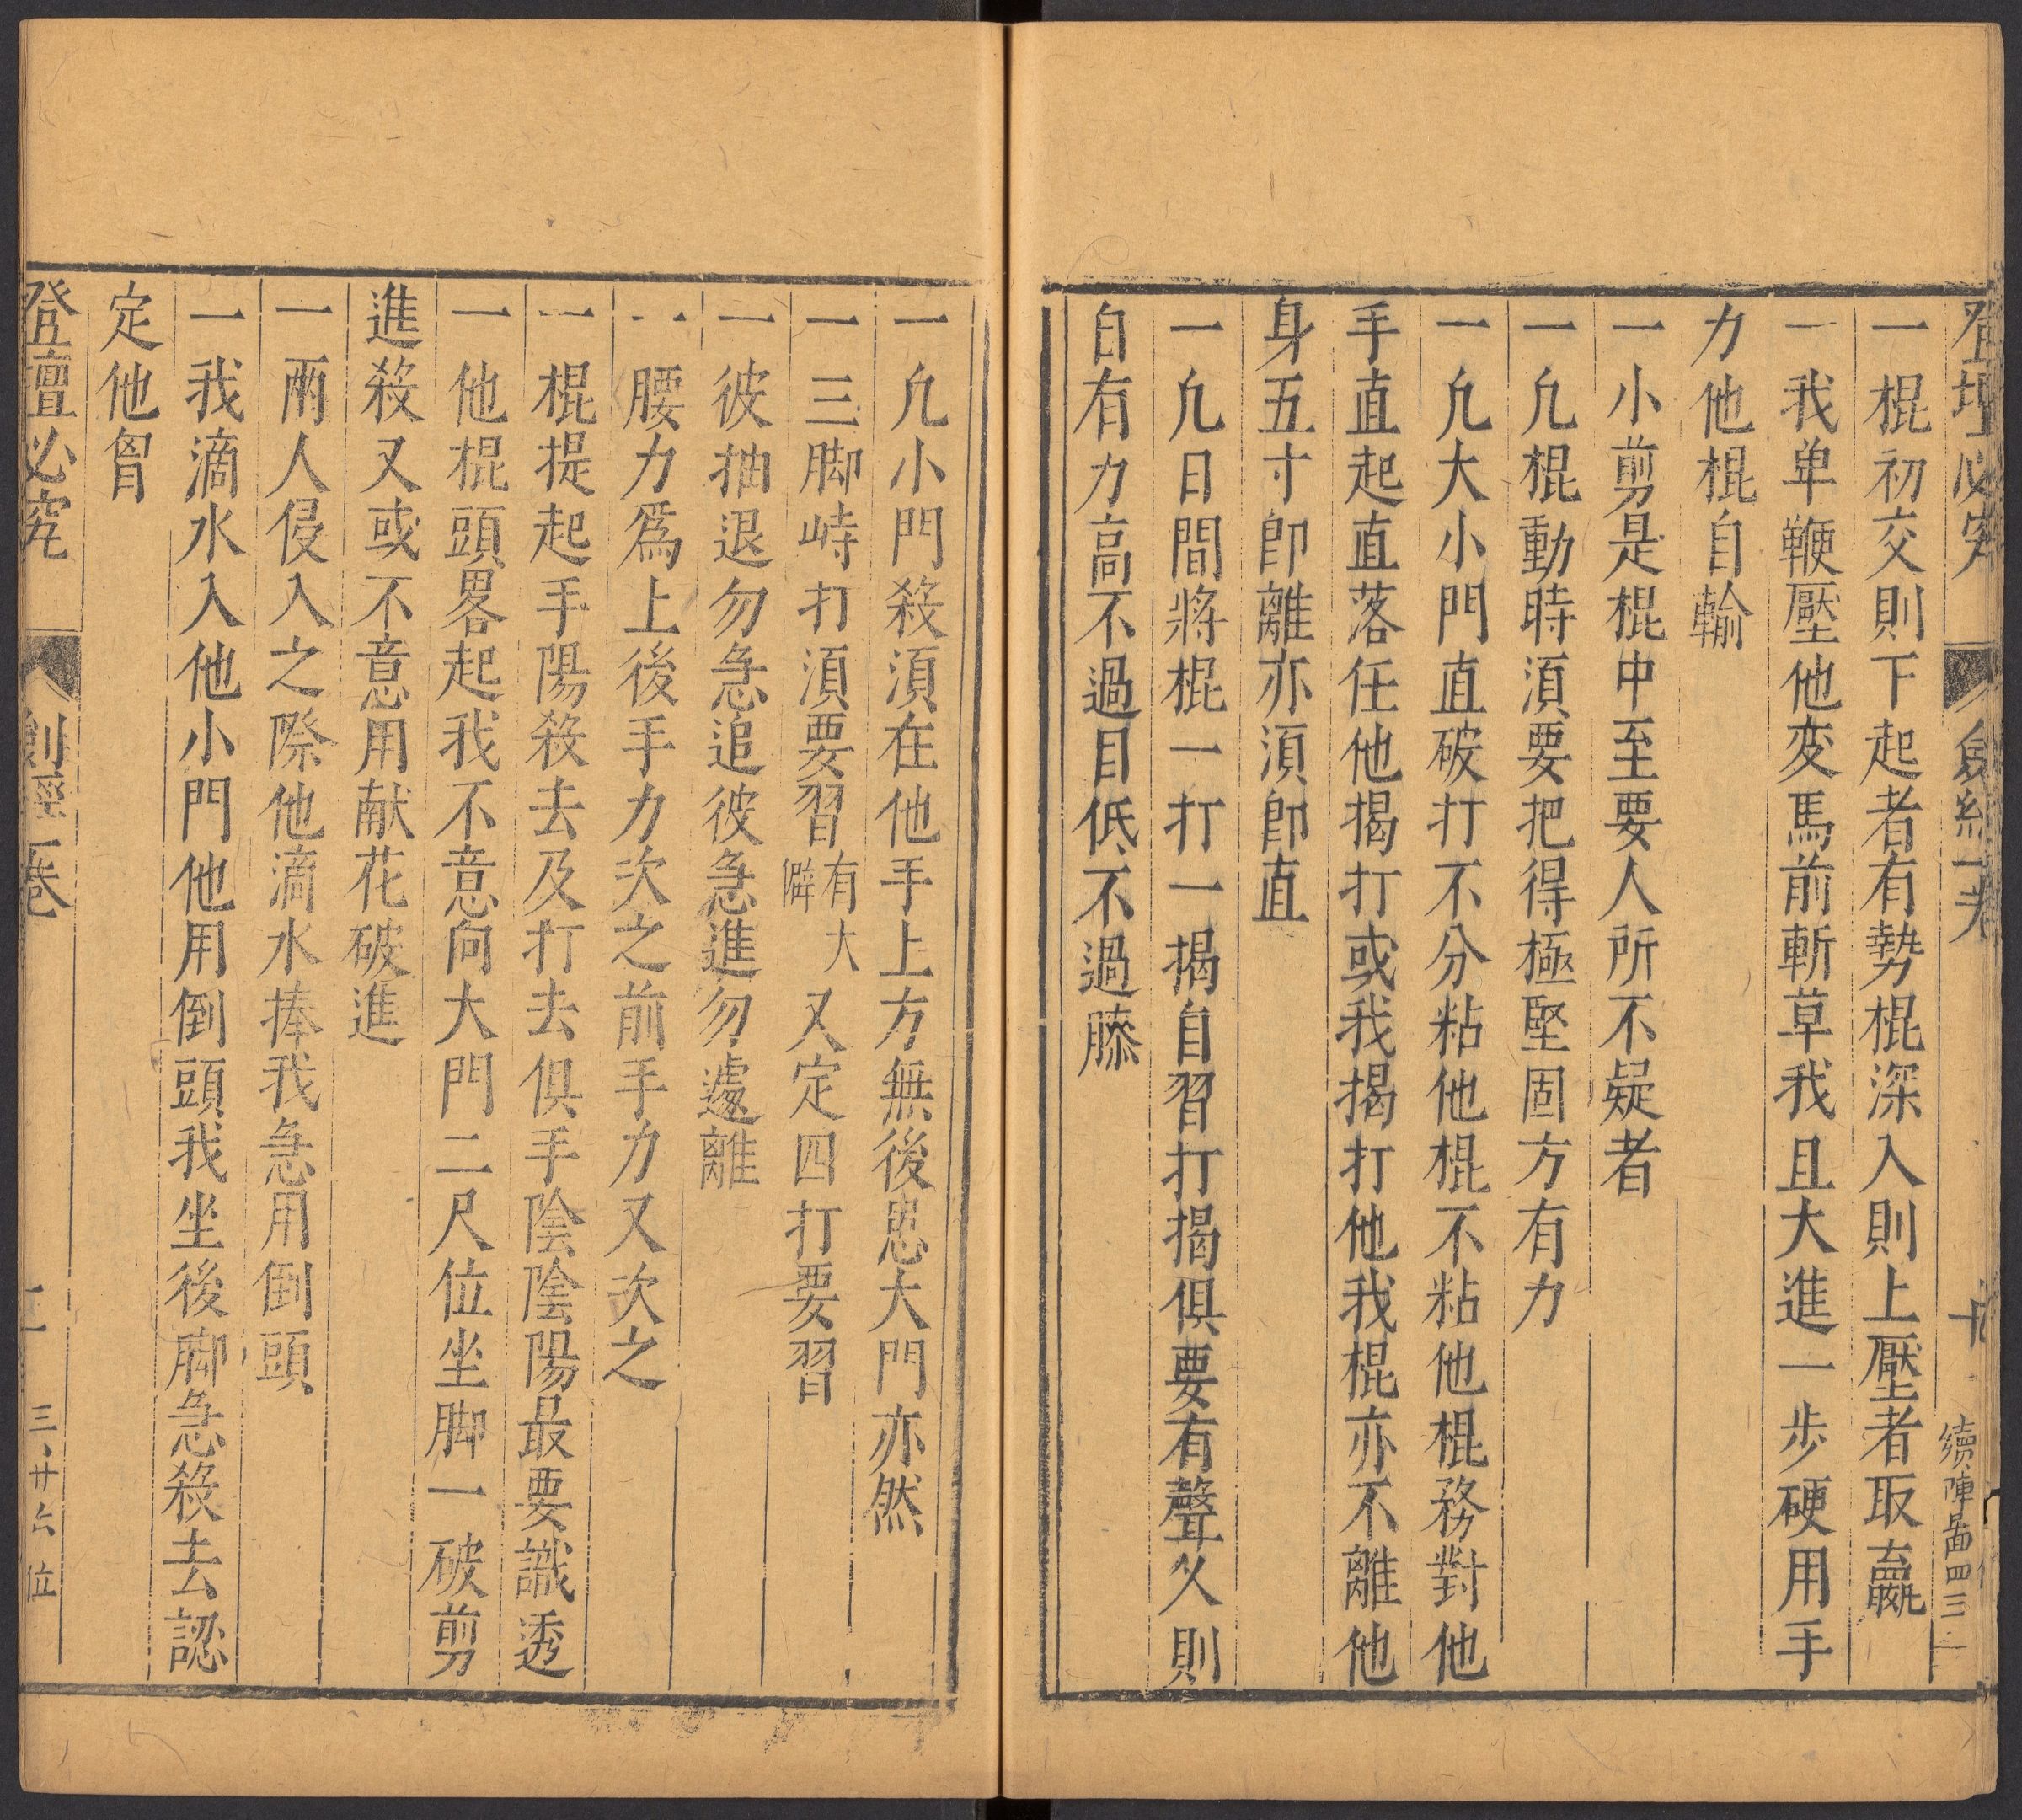 登壇必究 劍經一卷 十 續陣畨四三二
一棍初交則下起者有勢棍深入則上壓者取贏
一我单鞭壓他变馬前斬草我且大進一步硬用手
力他棍自輸
一小剪是棍中至要人所不疑者
一凢棍動時湏要把得極堅固方有力
一凢大小門直破打不分粘他棍不粘他棍務對他
手直起直落任他揭打或我揭打他我棍亦不離他
身五寸卽離亦湏卽直
一凢日間將棍一打一揭自習打揭俱要有聲久則
自有力高不過目低不過膝
一凢小門殺湏在他手上方無後患大門亦然
一三脚峙打湏要習有大僻又定四打要習
一彼抽退勿急追彼急進勿遽離
一腰力爲上後手力次之前手力又次之
一棍提起手陽殺去及打去俱手陰陰陽最要識透
一他棍頭畧起我不意向大門二尺位坐脚一破剪
進殺又或不意用献花破進
一兩人侵入之際他滴水捧我急用倒頭
一我滴水入他小門他用倒頭我坐後脚急殺去認
定他胷
登壇必究 劍經一卷 十一 三、廿六位